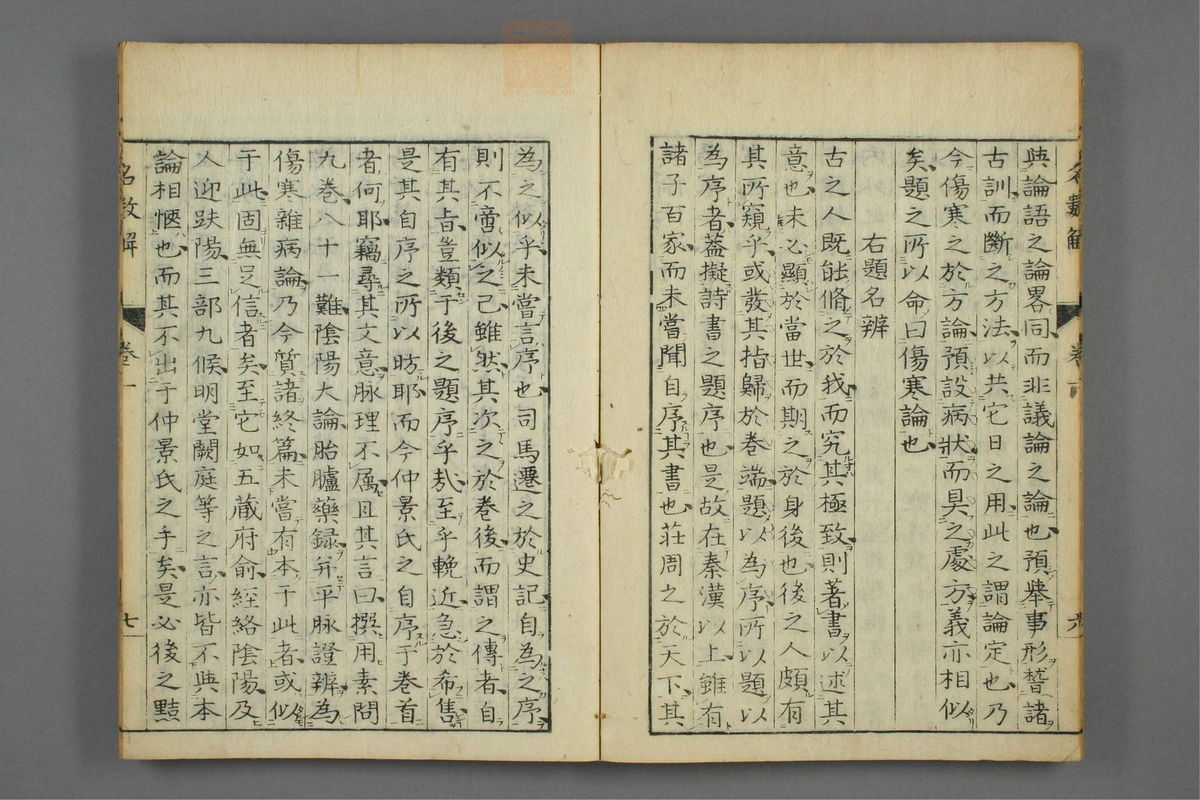 與論語之論畧同而非議論之論也預舉事形誓諸
古訓而斷之方法以共它日之用此之謂論定也乃
今傷寒之於方論預設病狀而具之處方義亦相似
矣題之所以命曰傷寒論也
右題名辨
古之人既能脩之於我而究其極致則著書以述其
意也未必顯於當世而期之於身後也後之人頗有
其所窺乎或發其指歸於卷端題以為序所以題以
為序者蓋擬詩書之題序也是故在秦漢以上雖有
諸子百家而未嘗聞自序其書也莊周之於天下其
為之似乎未嘗言序也司馬遷之於史記自為之序
則不啻似之已雖然其次之於卷後而謂之傳者自
有其旨豈類于後之題序乎哉至乎輓近急於布售
是其自序之所以昉耶而今仲景氏之自序于卷首
者何耶竊尋其文意脉理不属且其言曰撰用素問
九卷八十一難陰陽大論胎臚藥録并平脉證辨為
傷寒雜病論乃今質諸終篇未嘗有本于此者或似
于此固無足信者矣至它如五蔵府俞經絡陰陽及
人迎趺陽三部九候明堂闕庭等之言亦皆不與本
論相愜也而其不出于仲景氏之手矣是必後之黠
名數解
卷一
七